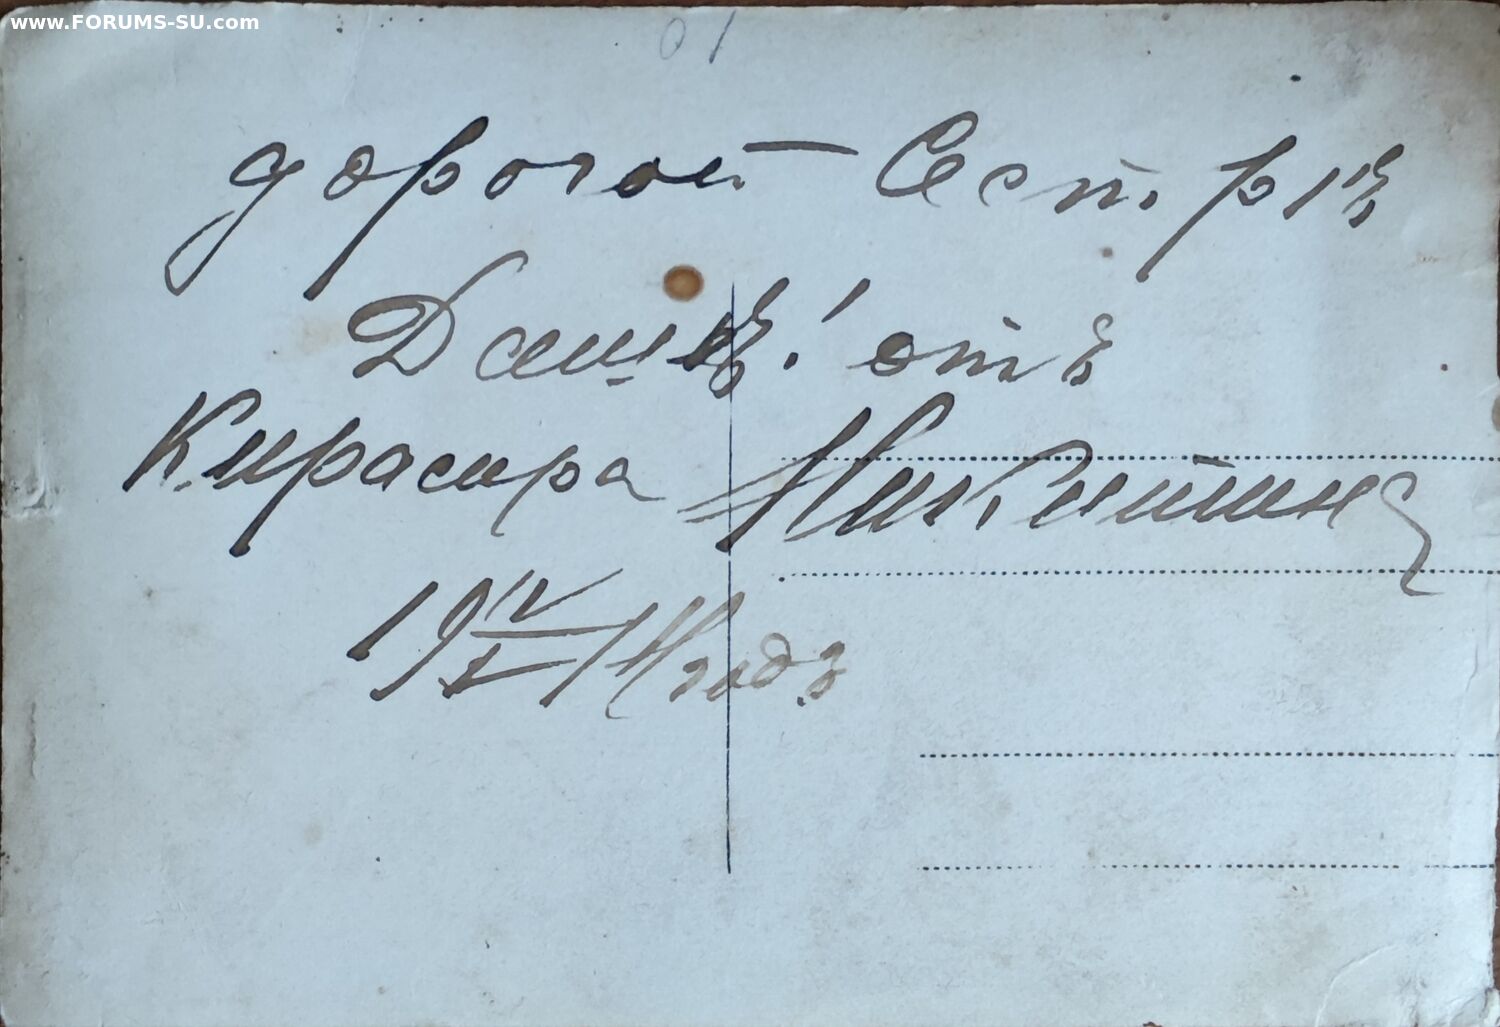 www.FORUMS-SU.com
01
дорогой Сестрѣ
Дашѣ! отъ
Кирасира Никитина
19 IV/X 14 годъ